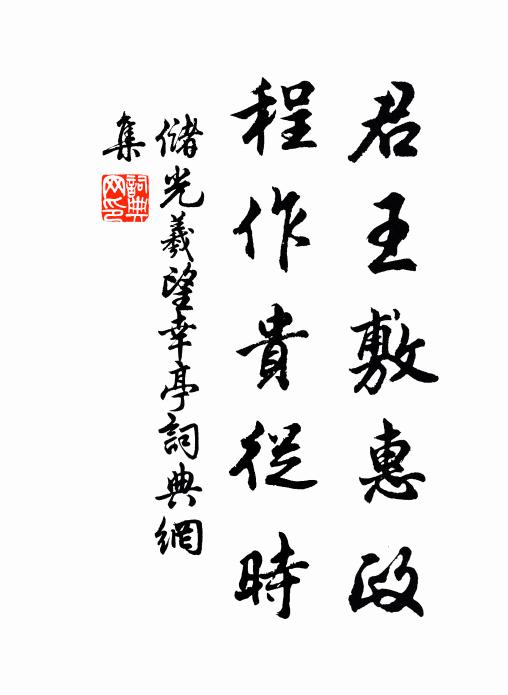 君王敷惠政
程作貴從時
儲光羲望幸亭詞典網
集
詞典
网印